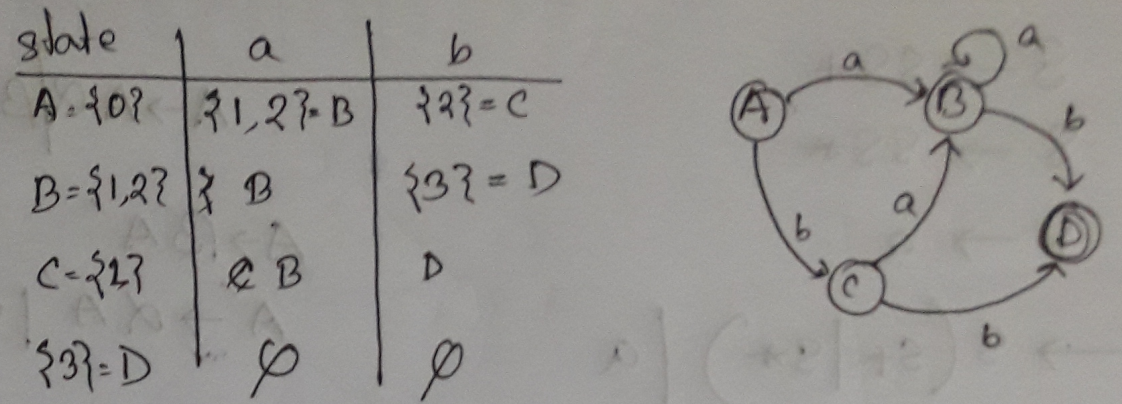 state a b
A = {0} {1,2} = B {2} = C
B = {1,2} } B {3} = D
C = {2} B D
{3} = D φ φ
A a B a b
b a D
C b